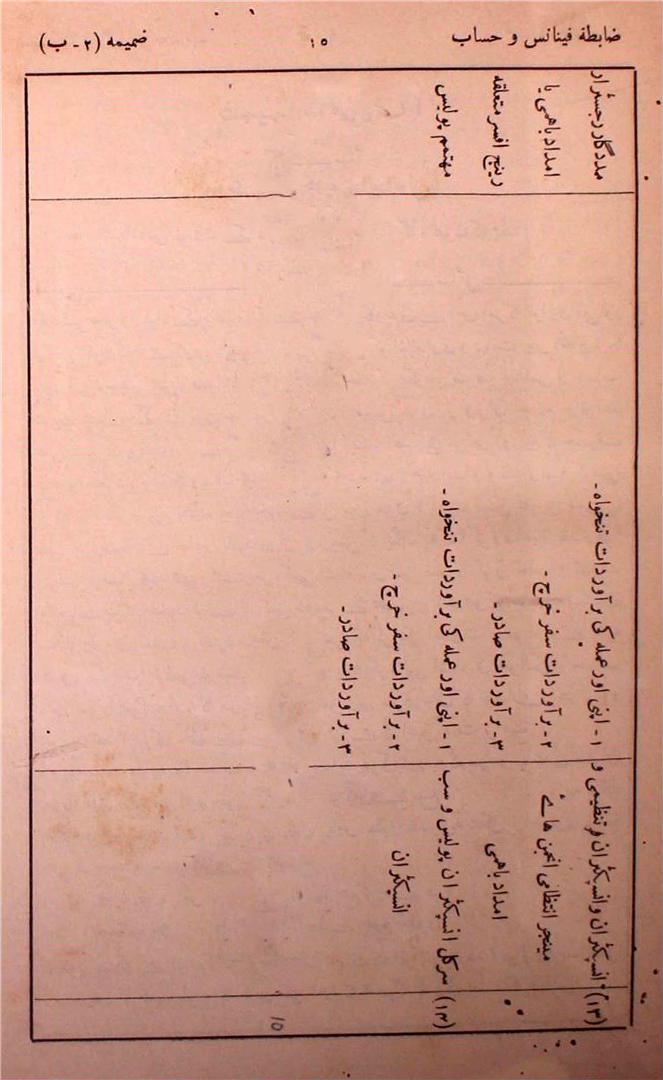 ضابطۂ فینانس و حساب
۱۵
ضمیمہ (۲ - ب)
(۱۳) انسپکٹران و انسپکٹران تنظیمی و
مینجر انتظامی انجمن ھائے
امداد باھمی
۱ - اپنی اور عملہ کی برآوردات تنخواہ -
۲ - برآوردات سفر خرچ -
۳ - برآوردات صادر -
مددگار رجسٹرار
امداد باھمی یا
رینج افسر متعلقہ
(۱۴) سرکل انسپکٹران پولیس و سب
انسپکٹران
۱ - اپنی اور عملہ کی برآوردات تنخواہ -
۲ - برآوردات سفر خرچ -
۳ - برآوردات صادر -
مہتمم پولیس
15